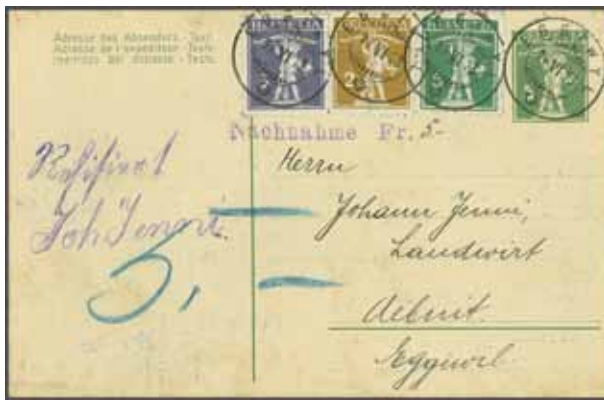 Adresse des Absenders - Text.
Adresse de l'expéditeur - Texte.
HELVETIA HELVETIA HELVETIA HELVETIA
Nachnahme Fr. 5.-
Refüsiert
Joh Jenni
5,-
Herrn
Johann Jenni,
Landwirt
Aebnit.
Eggiwil